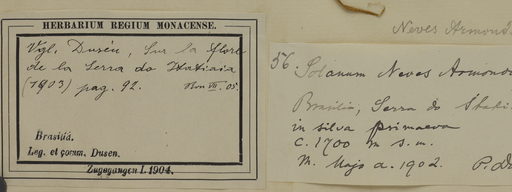 HERBARIUM REGIUM MONACENSE.
Vgl. Dusén, Sur la flore
de la Serra do Itatiaia
(1903) pag. 92.
VII. 05.
Brasilia.
Leg. et comm. Dusen.
Zugegangen I. 1904.
Neves Armond
56. Solanum Neves Armondi
Brasilia, Serra do Itati
in silva primaeva
c. 1700 m s. m.
m. Majo a. 1902. P. Du